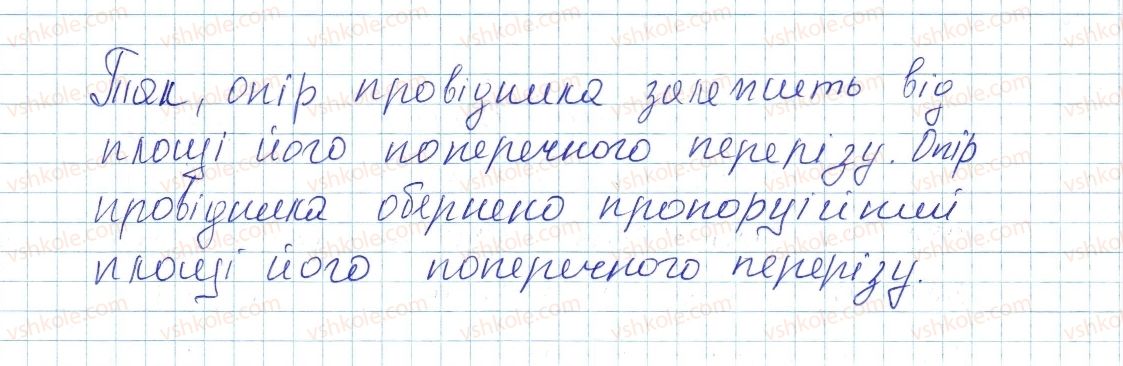 Так, опір провідника залежить від
площі його поперечного перерізу. Опір
провідника обернено пропорційний
площі його поперечного перерізу.